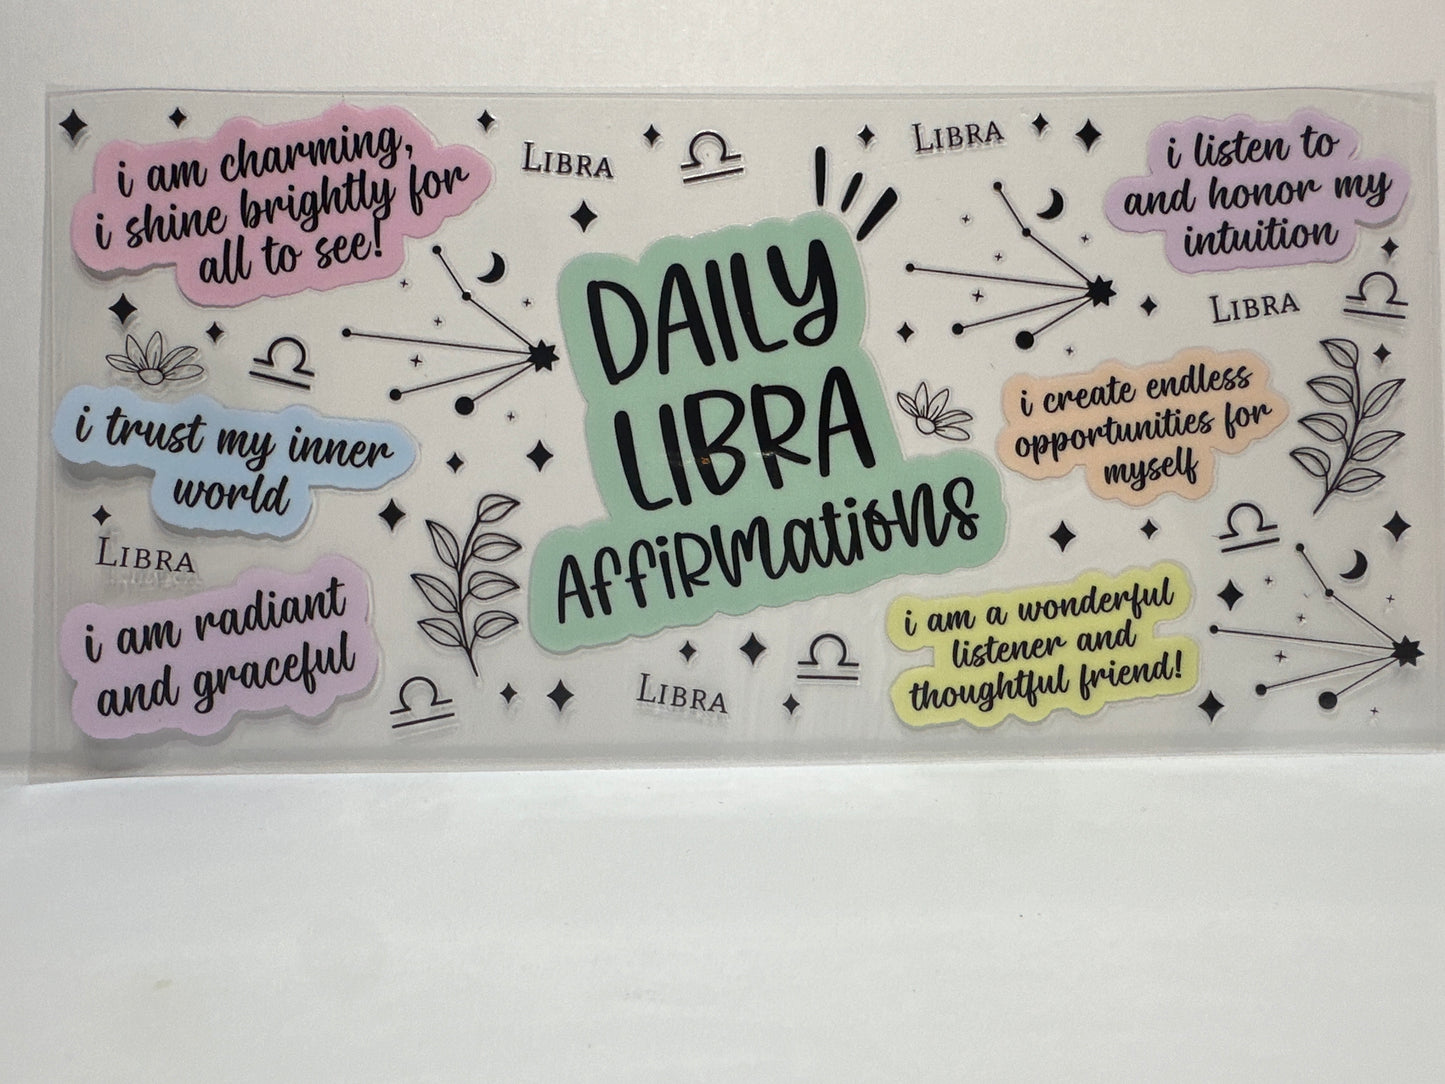 i am charming,
i shine brightly for
all to see!
LIBRA
LIBRA
i listen to
and honor my
intuition
DAILY
LIBRA
AFFiRmatioNS
LIBRA
i trust my inner
world
i create endless
opportunities for
myself
LIBRA
i am radiant
and graceful
i am a wonderful
listener and
thoughtful friend!
LIBRA